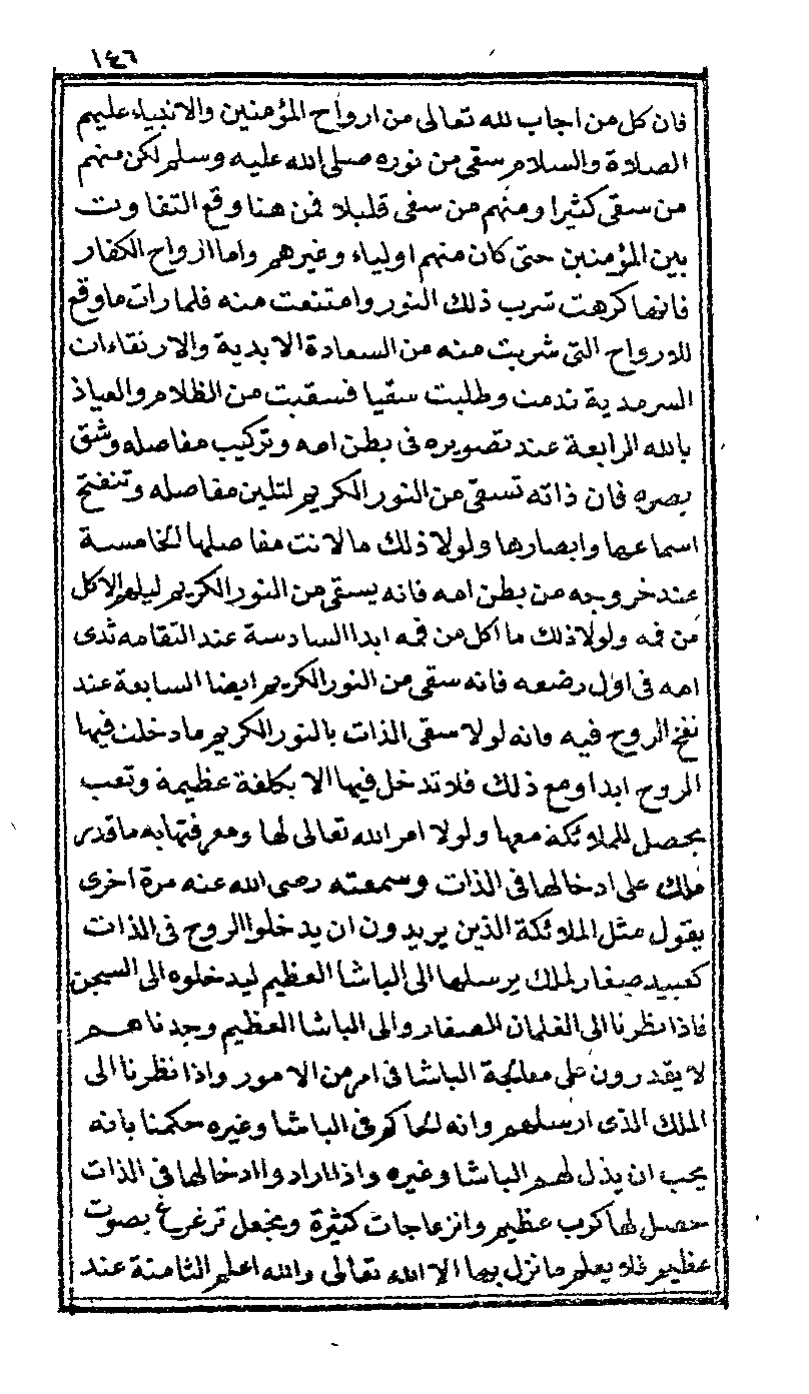 ١٤٦
فان كل من اجاب لله تعالى من ارواح المؤمنين والانبياء عليهم
الصلاة والسلام سقى من نوره صلى الله عليه وسلم لكن منهم
من سقى كثيرا ومنهم من سقى قليلا فمن هنا وقع التفاوت
بين المؤمنين حتى كان منهم اولياء وغيرهم واما ارواح الكفار
فانها كرهت شرب ذلك النور وامتنعت منه فلما رات ما وقع
للارواح التى شربت منه من السعادة الابدية والارتقاءات
السرمدية ندمت وطلبت سقيا فسقيت من الظلام والعياذ
بالله الرابعة عند تصويره فى بطن امه وتركيب مفاصله وشق
بصره فان ذاته تسقى من النور الكريم لتلين مفاصله وتنفتح
اسماعها وابصارها ولولا ذلك ما لانت مفاصلها الخامسة
عند خروجه من بطن امه فانه يسقى من النور الكريم ليلهم الاكل
من فمه ولولا ذلك ما اكل من فمه ابدا السادسة عند التقامه ثدى
امه فى اول رضعه فانه سقى من النور الكريم ايضا السابعة عند
نفخ الروح فيه فانه لولا سقى الذات بالنور الكريم ما دخلت فيها
الروح ابدا ومع ذلك فلا تدخل فيها الا بكلفة عظيمة وتعب
يحصل للملائكة معها ولولا امر الله تعالى لها ومعرفتها به ما قدر
ملك على ادخالها فى الذات وسمعته رضى الله عنه مرة اخرى
يقول مثل الملائكة الذين يريدون ان يدخلوا الروح فى الذات
كعبيد صغار لملك يرسلها الى الباشا العظيم ليدخلوه الى السجن
فاذا نظرنا الى الغلمان الصغار والى الباشا العظيم وجدناهم
لا يقدرون على معالجة الباشا فى امر من الامور واذا نظرنا الى
الملك الذى ارسلهم وانه الحاكم فى الباشا وغيره حكمنا بانه
يجب ان يذل لهم الباشا وغيره واذا ارادوا ادخالها فى الذات
حصل لها كرب عظيم وانزعاجات كثيرة وتجعل ترغرغ بصوت
عظيم فلا يعلم ما نزل بها الا الله تعالى والله اعلم الثامنة عند